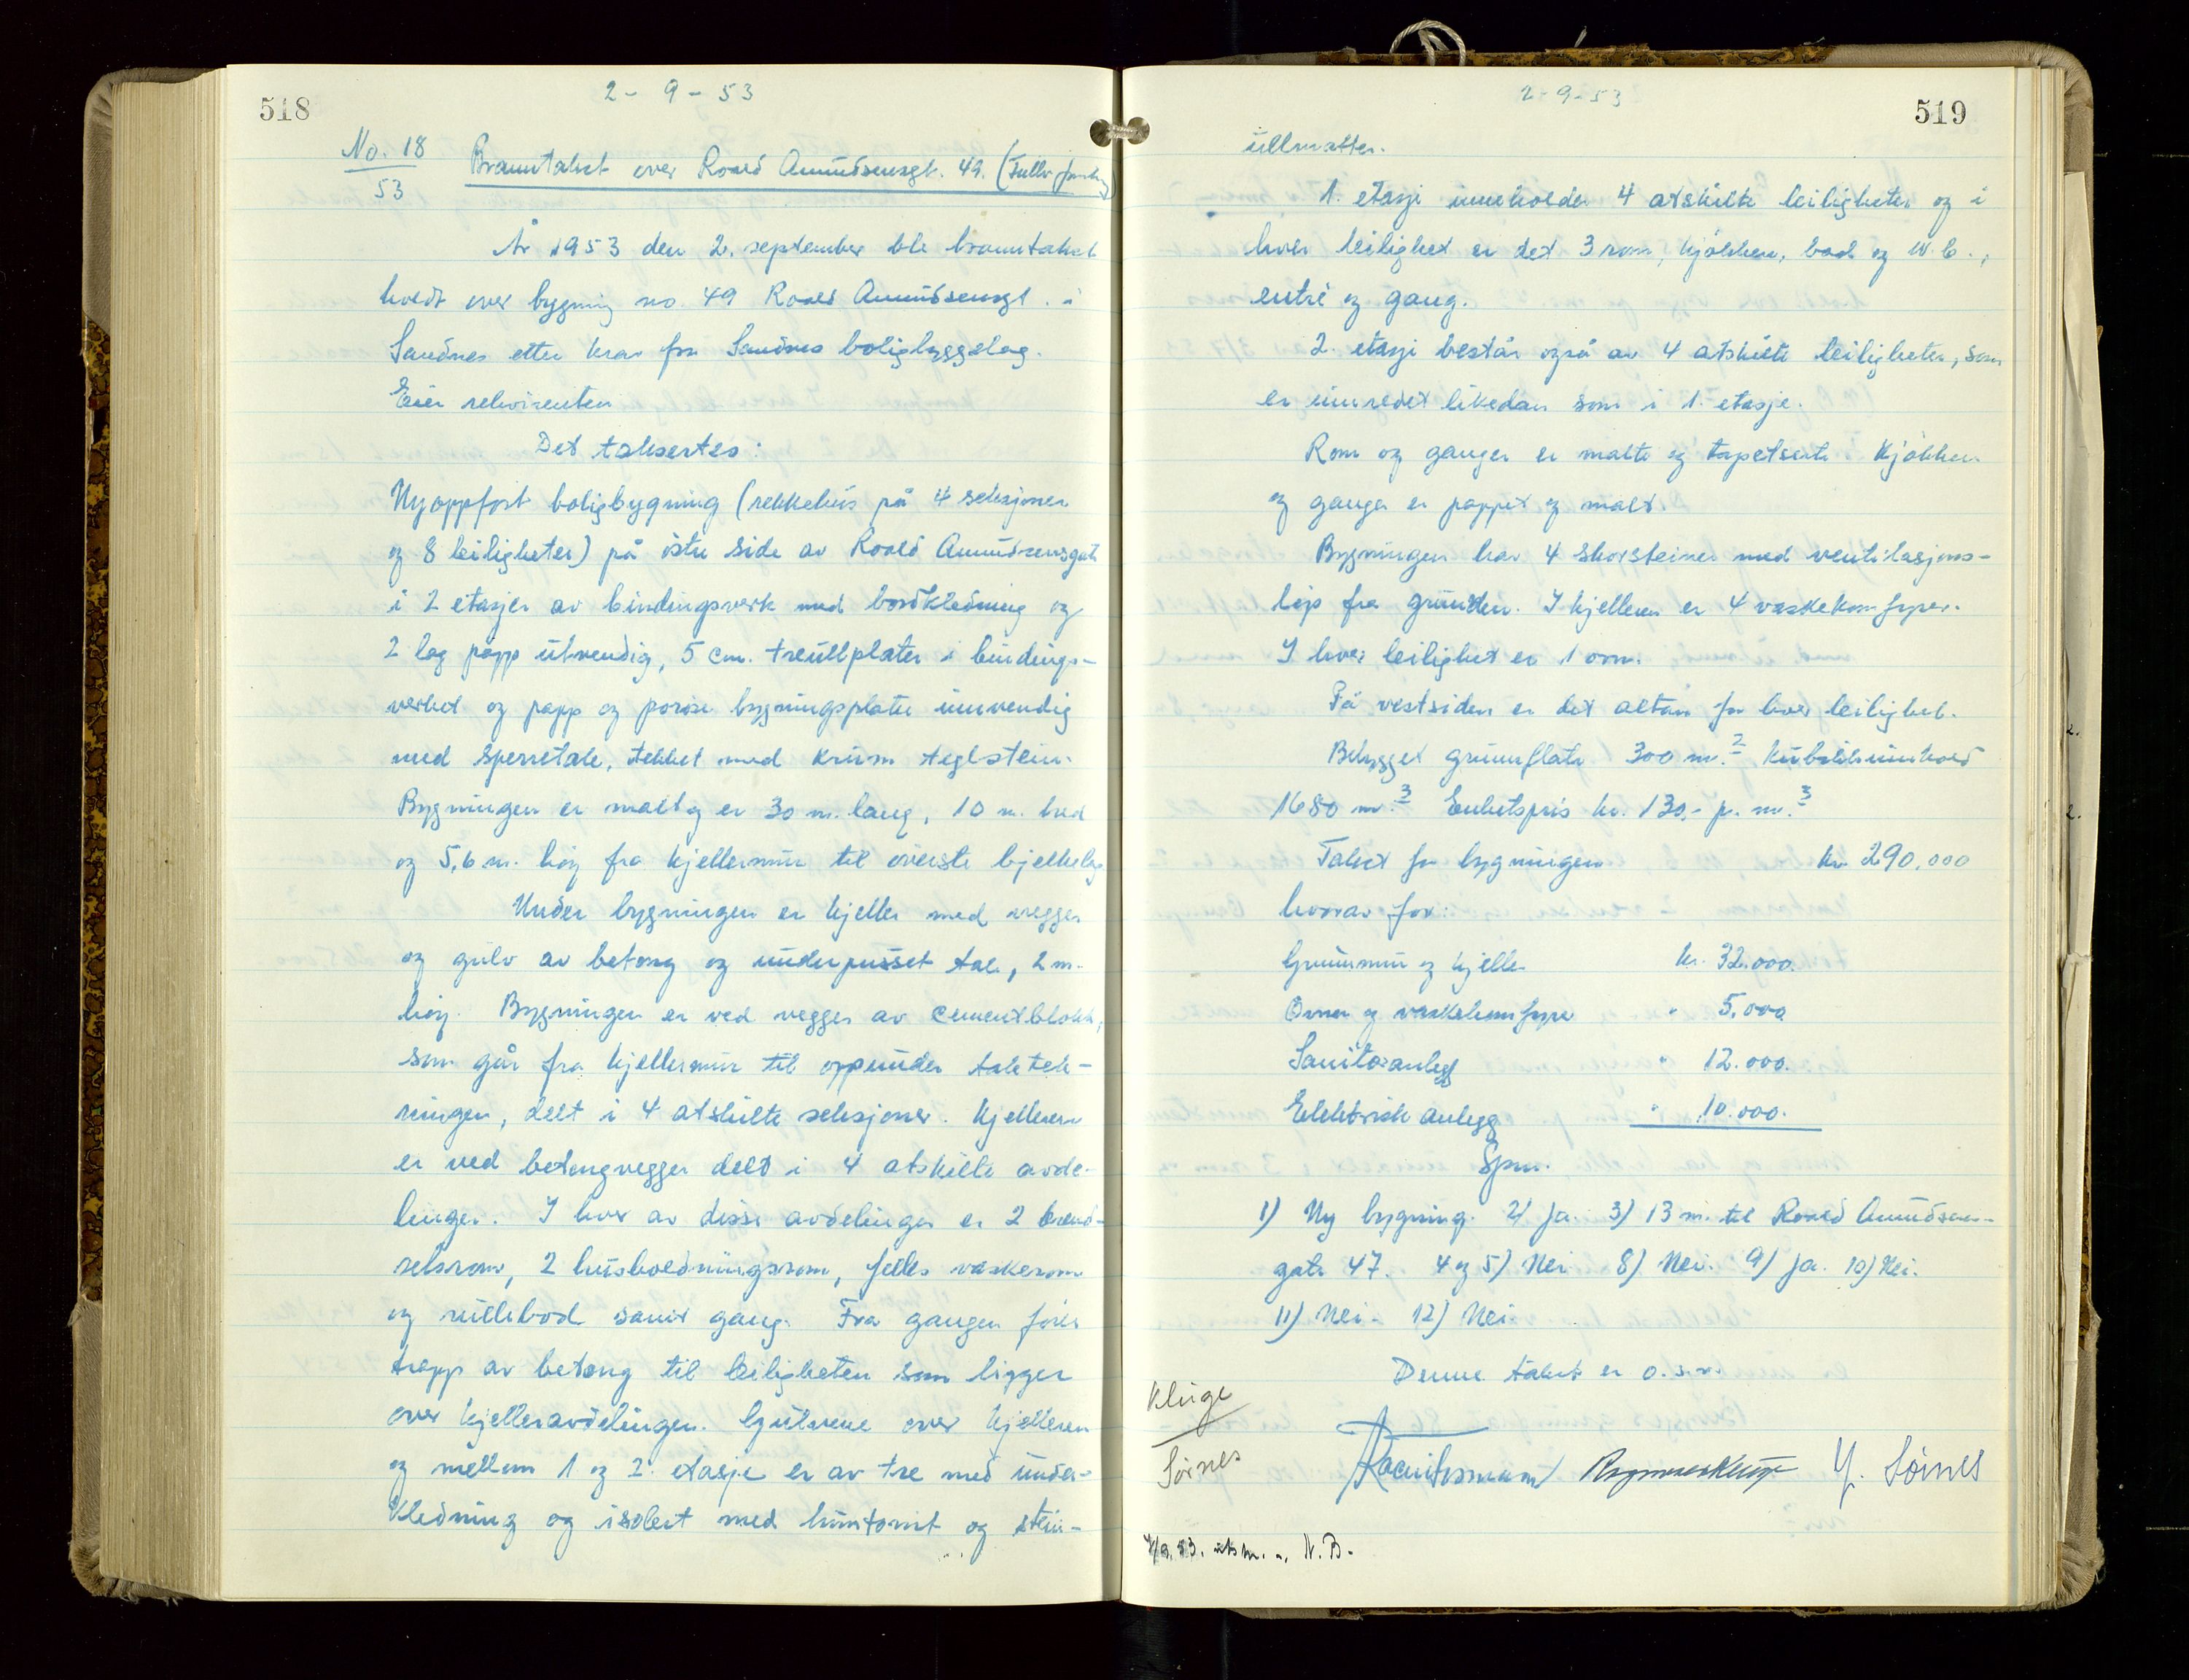 518
2 - 9 - 53
No. 18
53
Branntakst over Roald Amundsensgt. 49. (Fullv. forsikr.)
År 1953 den 2. september ble branntakst
holdt over bygning no. 49 Roald Amundsensgt. i
Sandnes etter krav fra Sandnes boligbyggelag.
Eier rekvirenten
Det taksertes:
Nyoppført boligbygning (rekkehus på 4 seksjoner
og 8 leiligheter) på östre side av Roald Amundsensgate
i 2 etasjer av bindingsverk med bordkledning og
2 lag papp utvendig, 5 cm. treullplater i bindings-
verket og papp og porøse bygningsplater innvendig
med sperretak, tekket med krum teglstein.
Bygningen er malt og er 30 m. lang, 10 m. bred
og 5,6 m. höy fra kjellermur til överste bjelkelag
Under bygningen er kjeller med vegger
og gulv av betong og underpusset tak, 2 m.
höy. Bygningen er ved vegger av cementblokk,
som går fra kjellermur til oppunder taktek-
ningen, delt i 4 atskilte seksjoner. Kjelleren
er ved betongvegger delt i 4 atskilte avde-
linger. I hver av disse avdelinger er 2 brend-
selsrom, 2 husholdningsrom, felles vaskerom
og rullebod samt gang. Fra gangen förer
trapp av betong til leiligheten som ligger
over kjelleravdelingen. Gulvene over kjelleren
og mellom 1 og 2. etasje er av tre med under-
kledning og isolert med huntonit og stein-
2-9-53
519
ullmatter.
1. etasje inneholder 4 atskilte leiligheter og i
hver leilighet er det 3 rom, kjökken, bad og W.C.,
entré og gang.
2. etasje består også av 4 atskilte leiligheter, som
er innredet likedan som i 1. etasje.
Rom og ganger er malte og tapetserte. Kjökken
og ganger er pappet og malt.
Bygningen har 4 skorsteiner med ventilasjons-
löp fra grunden. I kjelleren er 4 vaskekomfyrer.
I hver leilighet er 1 ovn.
På vestsiden er det altan for hver leilighet.
Bebygget grunnflate 300 m.2 Kubikkinnhold
1680 m.3 Enhetspris kr. 130,- p. m.3
Takst for bygningen kr. 290,000
hvorav for:
Grunnmur og kjeller kr. 32.000.
Ovner og vaskekomfyrer " 5.000
Sanitæranlegg " 12.000.
Elektrisk anlegg " 10.000.
Spm.
1) Ny bygning. 2) Ja. 3) 13 m. til Roald Amundsens-
gate 47. 4 og 5) Nei 8) Nei. 9) Ja. 10) Nei.
11) Nei. 12) Nei.
Denne takst er o.s.v.
Kluge
Sörnes
Y. Sörnes
53. N. B.